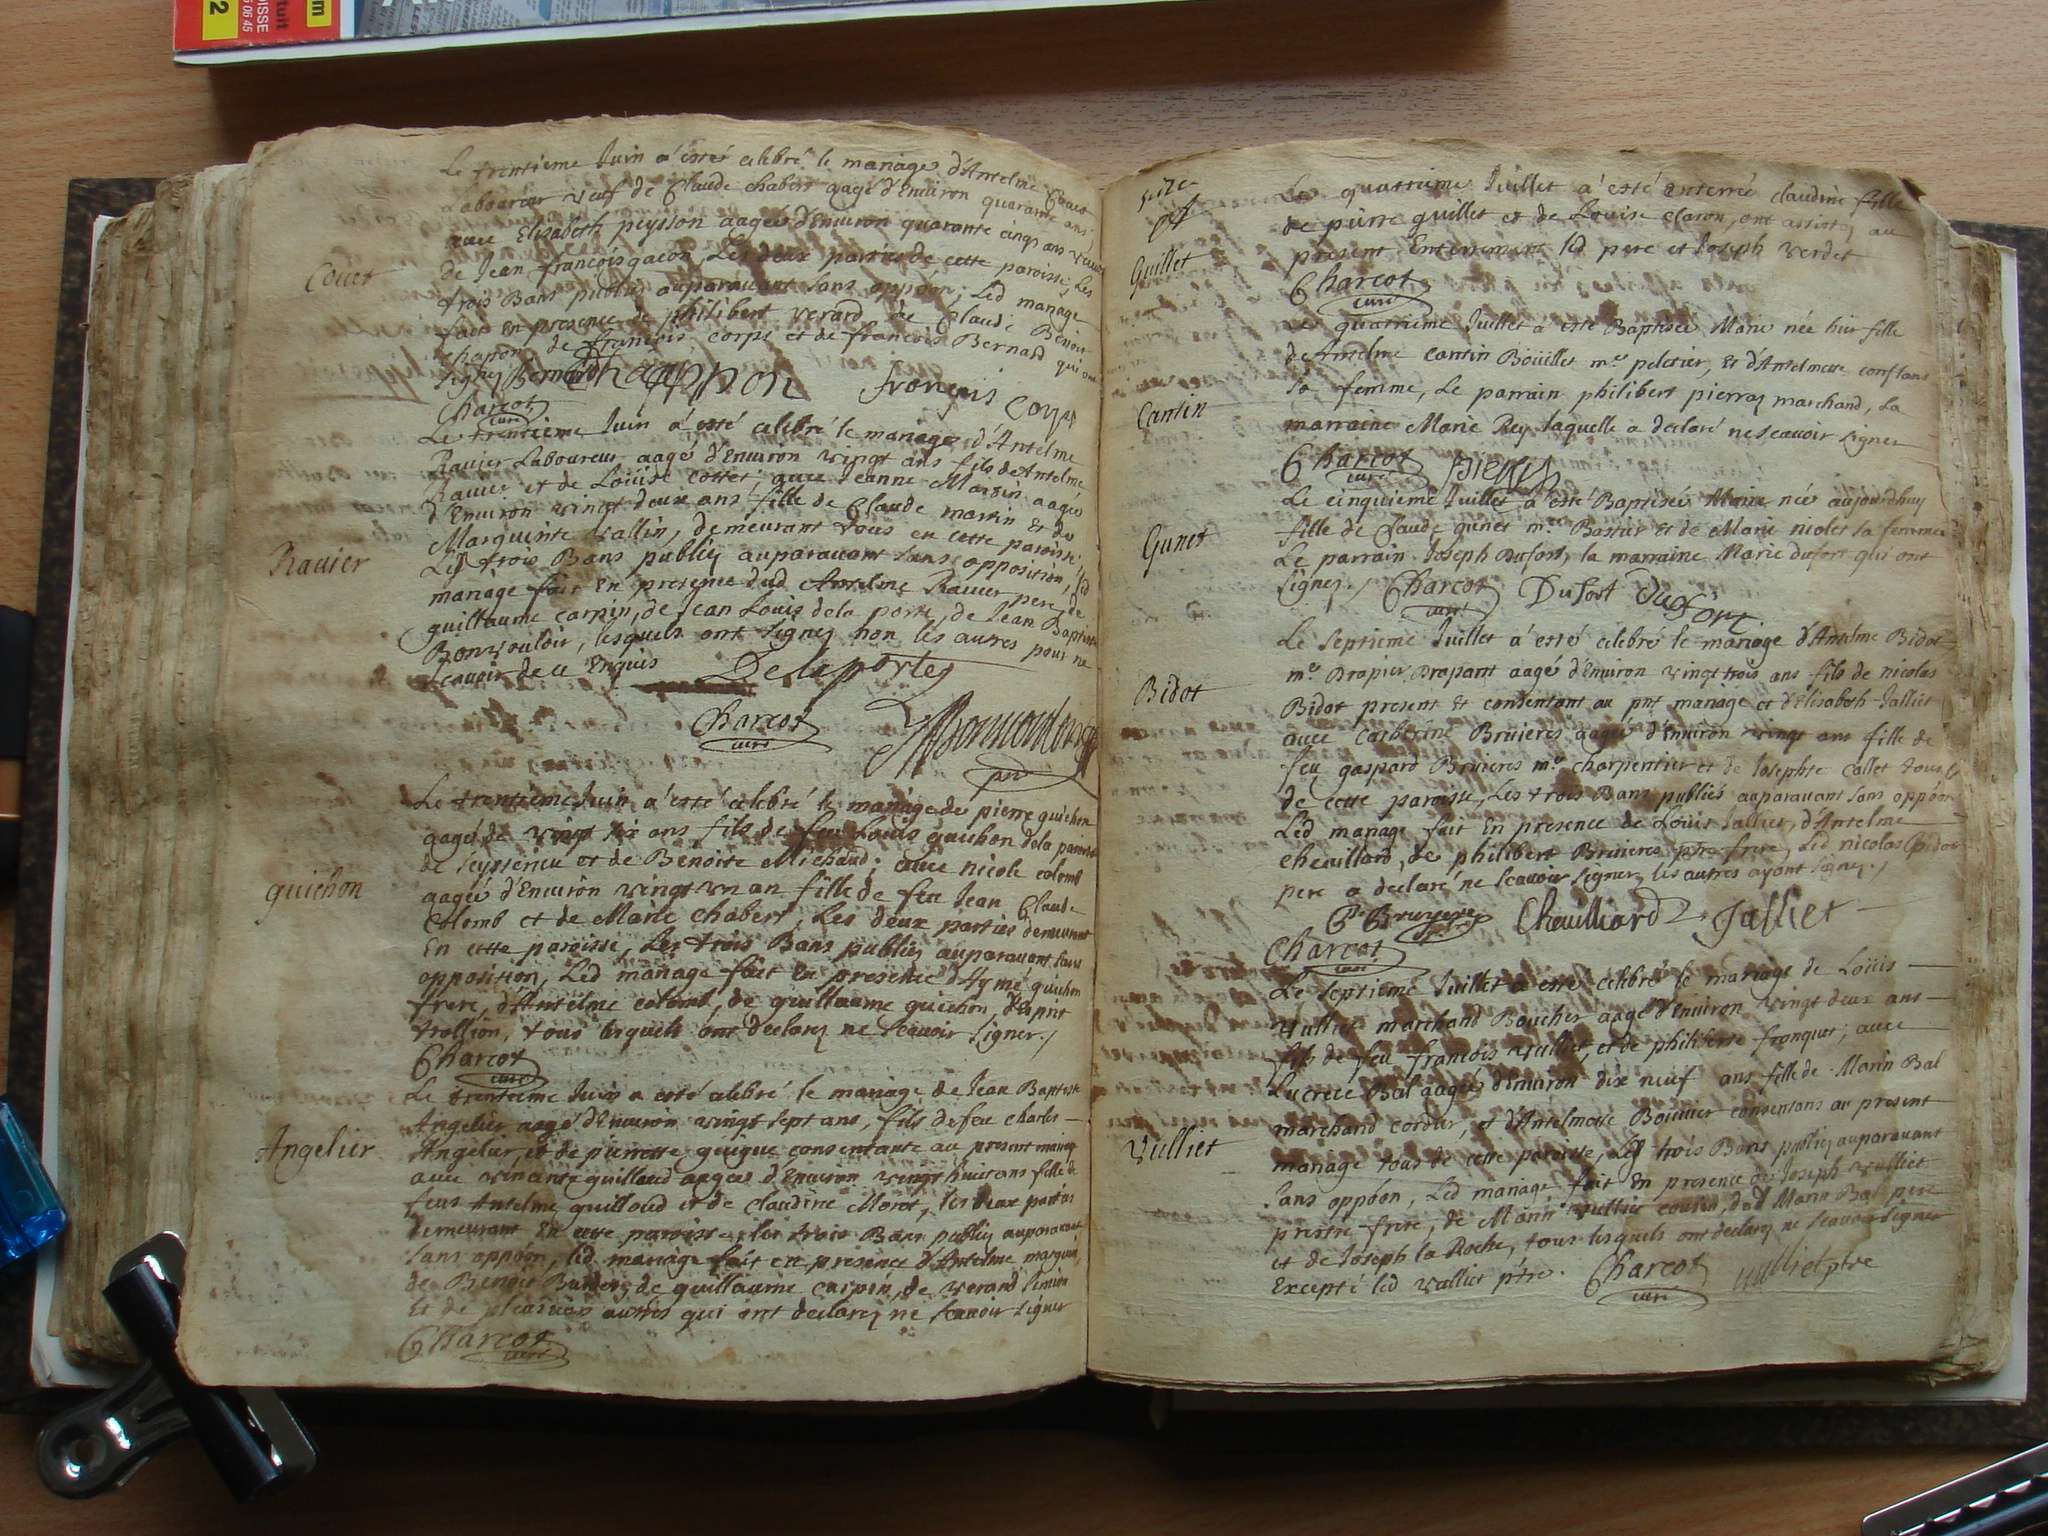 Le trentieme Juin a esté celebré le mariage d'Antelme Couet
Laboureur veuf de Claude chabert aagé d'Environ quarante ans
avec Elizabeth peysson aagée d'Environ quarante cinq ans veuve
de Jean francois gacon, Les deux parties de cette paroisse, Les
Couet
trois Bans publiez auparavant sans oppõon, Led mariage
fait En presence de philibert verard, de Claude Benoit
chapon, de francois corps et de francois Bernard qui ont
signez Bernard Chappon françois corps
Charcot
curé
Le trentieme Juin a esté celebré le mariage d'Antelme
Ravier Laboureur aagé d'Environ vingt ans fils de Antelme
Ravier et de Loüise cottet; avec Jeanne Martin aagée
d'Environ vingt deux ans fille de Claude martin et de
Marguerite vallin, demeurant tous en cette paroisse
Ravier
Les trois Bans publiez auparavant sans opposition, Led
mariage fait En presence dud Antelme Ravier pere, de
guillaume carpin, de Jean Louis dela porte, de Jean Baptiste
Bonvouloir, lesquels ont signez non les autres pour ne
scavoir de ce Enquis Delaporte
Charcot
curé
Le trentieme Juin a esté celebré le mariage de pierre guichon
aagé de vingt six ans fils de feu Louis guichon dela paroisse
de seyssenieu et de Benoite Michaud; avec nicole colomb
guichon
aagée d'Environ vingt un an fille de feu Jean Claude
Colomb et de Marie chabert, Les deux parties demeurant
En cette paroisse, Les trois Bans publiez auparavant sans
opposition, Led mariage fait En presence d'Hymé guichon
frere, d'Antelme colomb, de guillaume guichon, d'Esprit
trollion, tous lesquels ont declarez ne scavoir signer./
Charcot
curé
Le trentieme Juin a esté celebré le mariage de Jean Baptiste
Angelier aagé d'Environ vingt sept ans, fils de feu Charles
Angelier
Angelier, et de pierrette guigue consentante au present mariage
avec guilloud aagée d'Environ vingt huit ans fille de
feus Antelme guilloud et de Claudine Moret, les deux parties
demeurant En cette paroisse, les trois Bans publiez auparavant
sans oppõon, led mariage fait en presence d'Antelme
de Benoit de guillaume carpin, de verand
Et de plusieurs autres qui ont declarez ne scavoir signer
Charcot
curé
Le quatrieme Juillet a esté enterrée claudine fille
de pierre guillet et de Louise claron, ont assistez au
Guillet
present Enterrement led pere et Joseph verdet
Charcot
curé
Le quatrieme Juillet a esté Baptisée Marie née hier fille
de Antelme cantin Boüillet me peletier, et d'Antelmette constans
Cantin
sa femme, Le parrain philibert pierray marchand, La
marraine Marie Rey laquelle a declaré ne scavoir signer
Charcot
curé
Le cinquieme Juillet a esté Baptisée Marie née aujourdhuy
Gunet
fille de Claude gunet me Bastier et de Marie nicolet sa femme
Le parrain Joseph Dufort, la marraine Marie dufort qui ont
signez./ Charcot Dufort dufort
curé
Le septieme Juillet a esté celebré le mariage d'Antelme Bidot
me Drapier Drapant aagé d'Environ vingt trois ans fils de nicolas
Bidot
Bidot present et consentant au pnt mariage et d'Elisabeth Jalliet
avec catherine Bruieres aagée d'Environ vingt ans fille de
feu gaspard Bruieres me charpentier et de Josephte callet tous
de cette paroisse, Les trois Bans publiés auparavant sans oppõon
Led mariage fait En presence de Louis Jalliet, d'Antelme
chevillard, de philibert Bruieres frere, Led nicolas Bidot
pere a declaré ne scavoir signer, les autres ayant signez./
Ph Bruyere Chevilliard Jalliet
Charcot
curé
Le septieme Juillet a esté celebré le mariage de Loüis
Vulliet marchand Boucher aagé d'Environ vingt deux ans
fils de feu francois vulliet, et de philiberte fronquet; avec
Lucrece Bal aagée d'Environ dix neuf ans fille de Marin Bal
marchand cordier, et d'Antelmette Bouvier consentans au present
Vulliet
mariage tous de cette paroisse, Les trois Bans publiez auparavant
sans oppõon, Led mariage fait En presence de Joseph vulliet
prestre frere, de Marin vulliet cousin, dud Marin Bal pere
et de Joseph la Roche, tous lesquels ont declarez ne scavoir signer
Excepté led vulliet ptre. Charcot vulliet ptre
curé